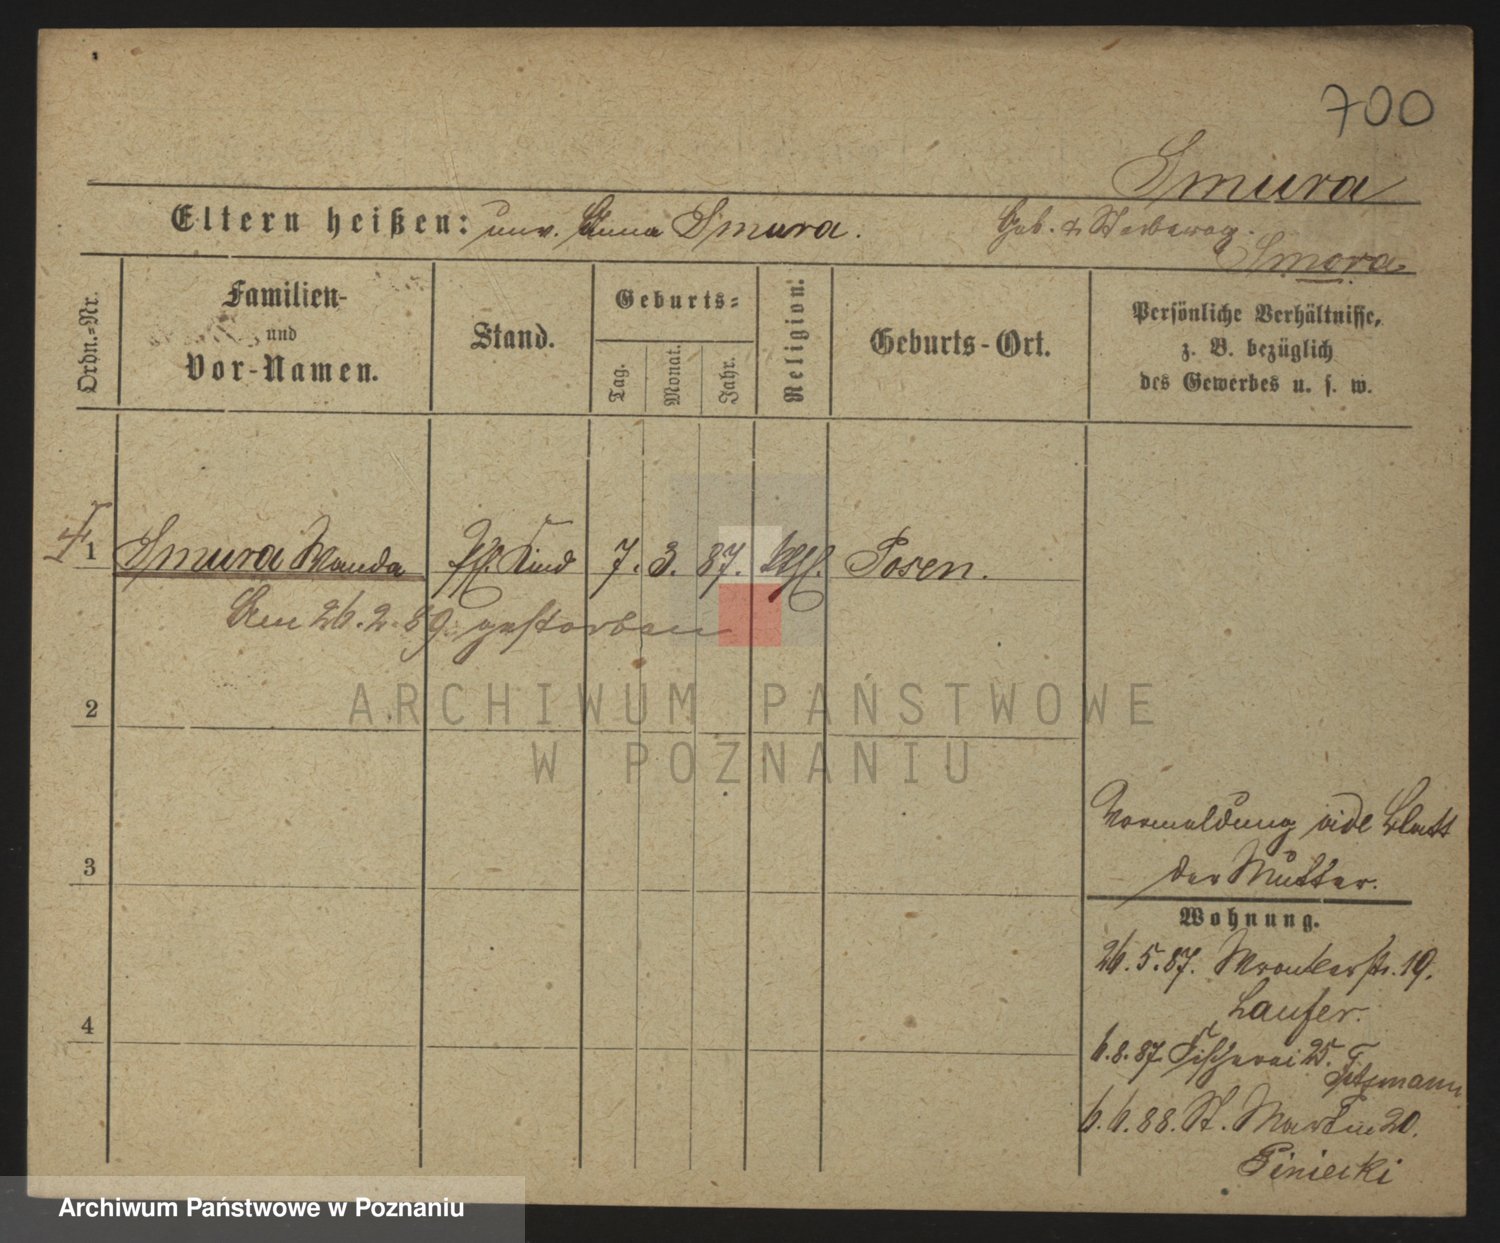 700
Smura
Eltern heißen: unv. Anna Smura.
Geb. &
Smora.
Ordn.-Nr.
Familien-
und
Vor-Namen.
Stand.
Geburts=
Tag.
Monat.
Jahr.
Religion.
Geburts-Ort.
Persönliche Verhältnisse,
z. B. bezüglich
des Gewerbes u. s. w.
1 Smura Wanda Kind 7. 3. 87. kth. Posen.
Am 26.2.89. gestorben
2
3
4
ARCHIWUM PAŃSTWOWE
W POZNANIU
Vormeldung vide Blatt
der Mutter.
Wohnung.
26.5.87. Wronkerstr. 19.
Laufer.
6.8.87. Fischerei 25.
6.6.88. St. Martin 20.
Piniecki
Archiwum Państwowe w Poznaniu